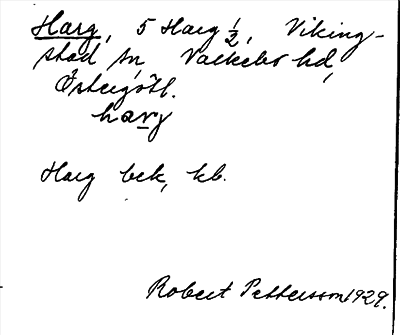 Harg, 5 Harg 1/2, Viking-
stad sn, Valkebo hd,
Östergötl.
harj
Harg bek, kb.
Robert Pettersson 1929.